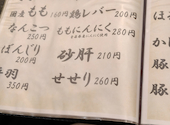 国産もも 160円
なんこつ
250円
ぼんじり
200円
手羽
350円
鶏レバー
200円
ももにんにく
280円
砂肝 210円
せせり 260円
ほ
か
豚
豚